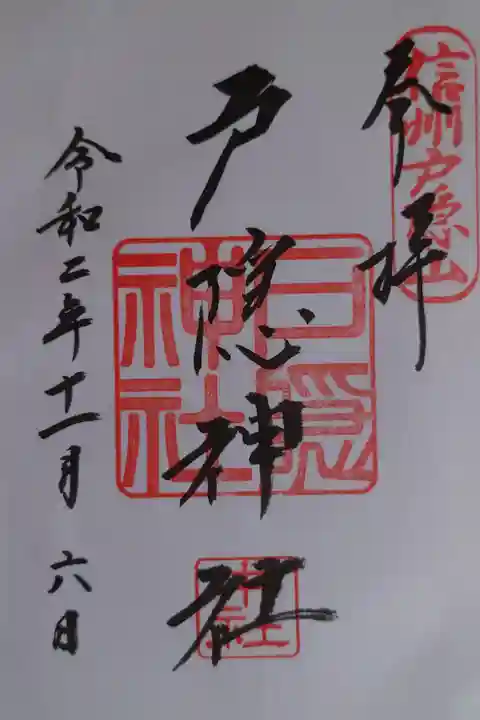 信州戸隠山
奉拝
戸隠神社
戸隠神社
中社
令和二年十一月六日